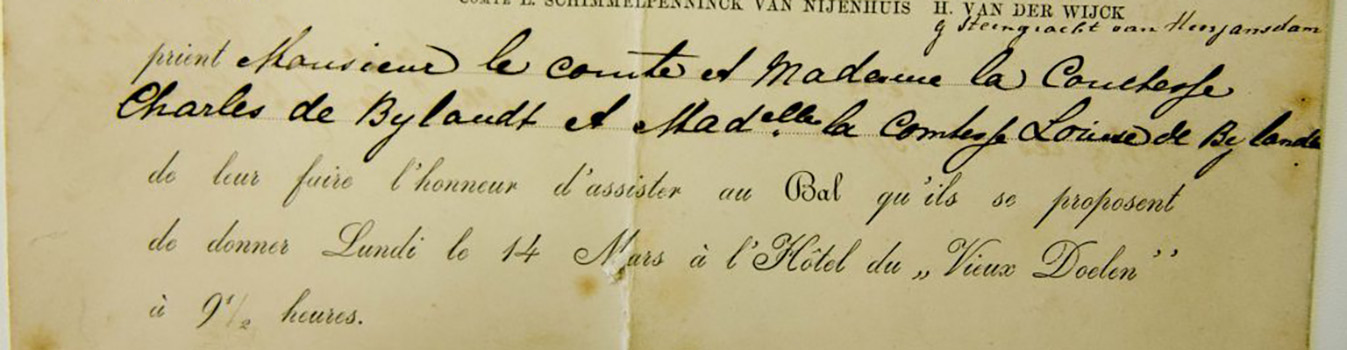 COMTE E. SCHIMMELPENNINCK VAN NIJENHUIS H. VAN DER WIJCK
g Steengracht van Moyansdam
prient Monsieur le comte et Madame la Comtesse
Charles de Bylandt et Mad.elle la comtesse Louise de Bylandt
de leur faire l'honneur d'assister au Bal qu'ils se proposent
de donner Lundi le 14 Mars à l'Hôtel du „Vieux Doelen”
à 9 1/2 heures.